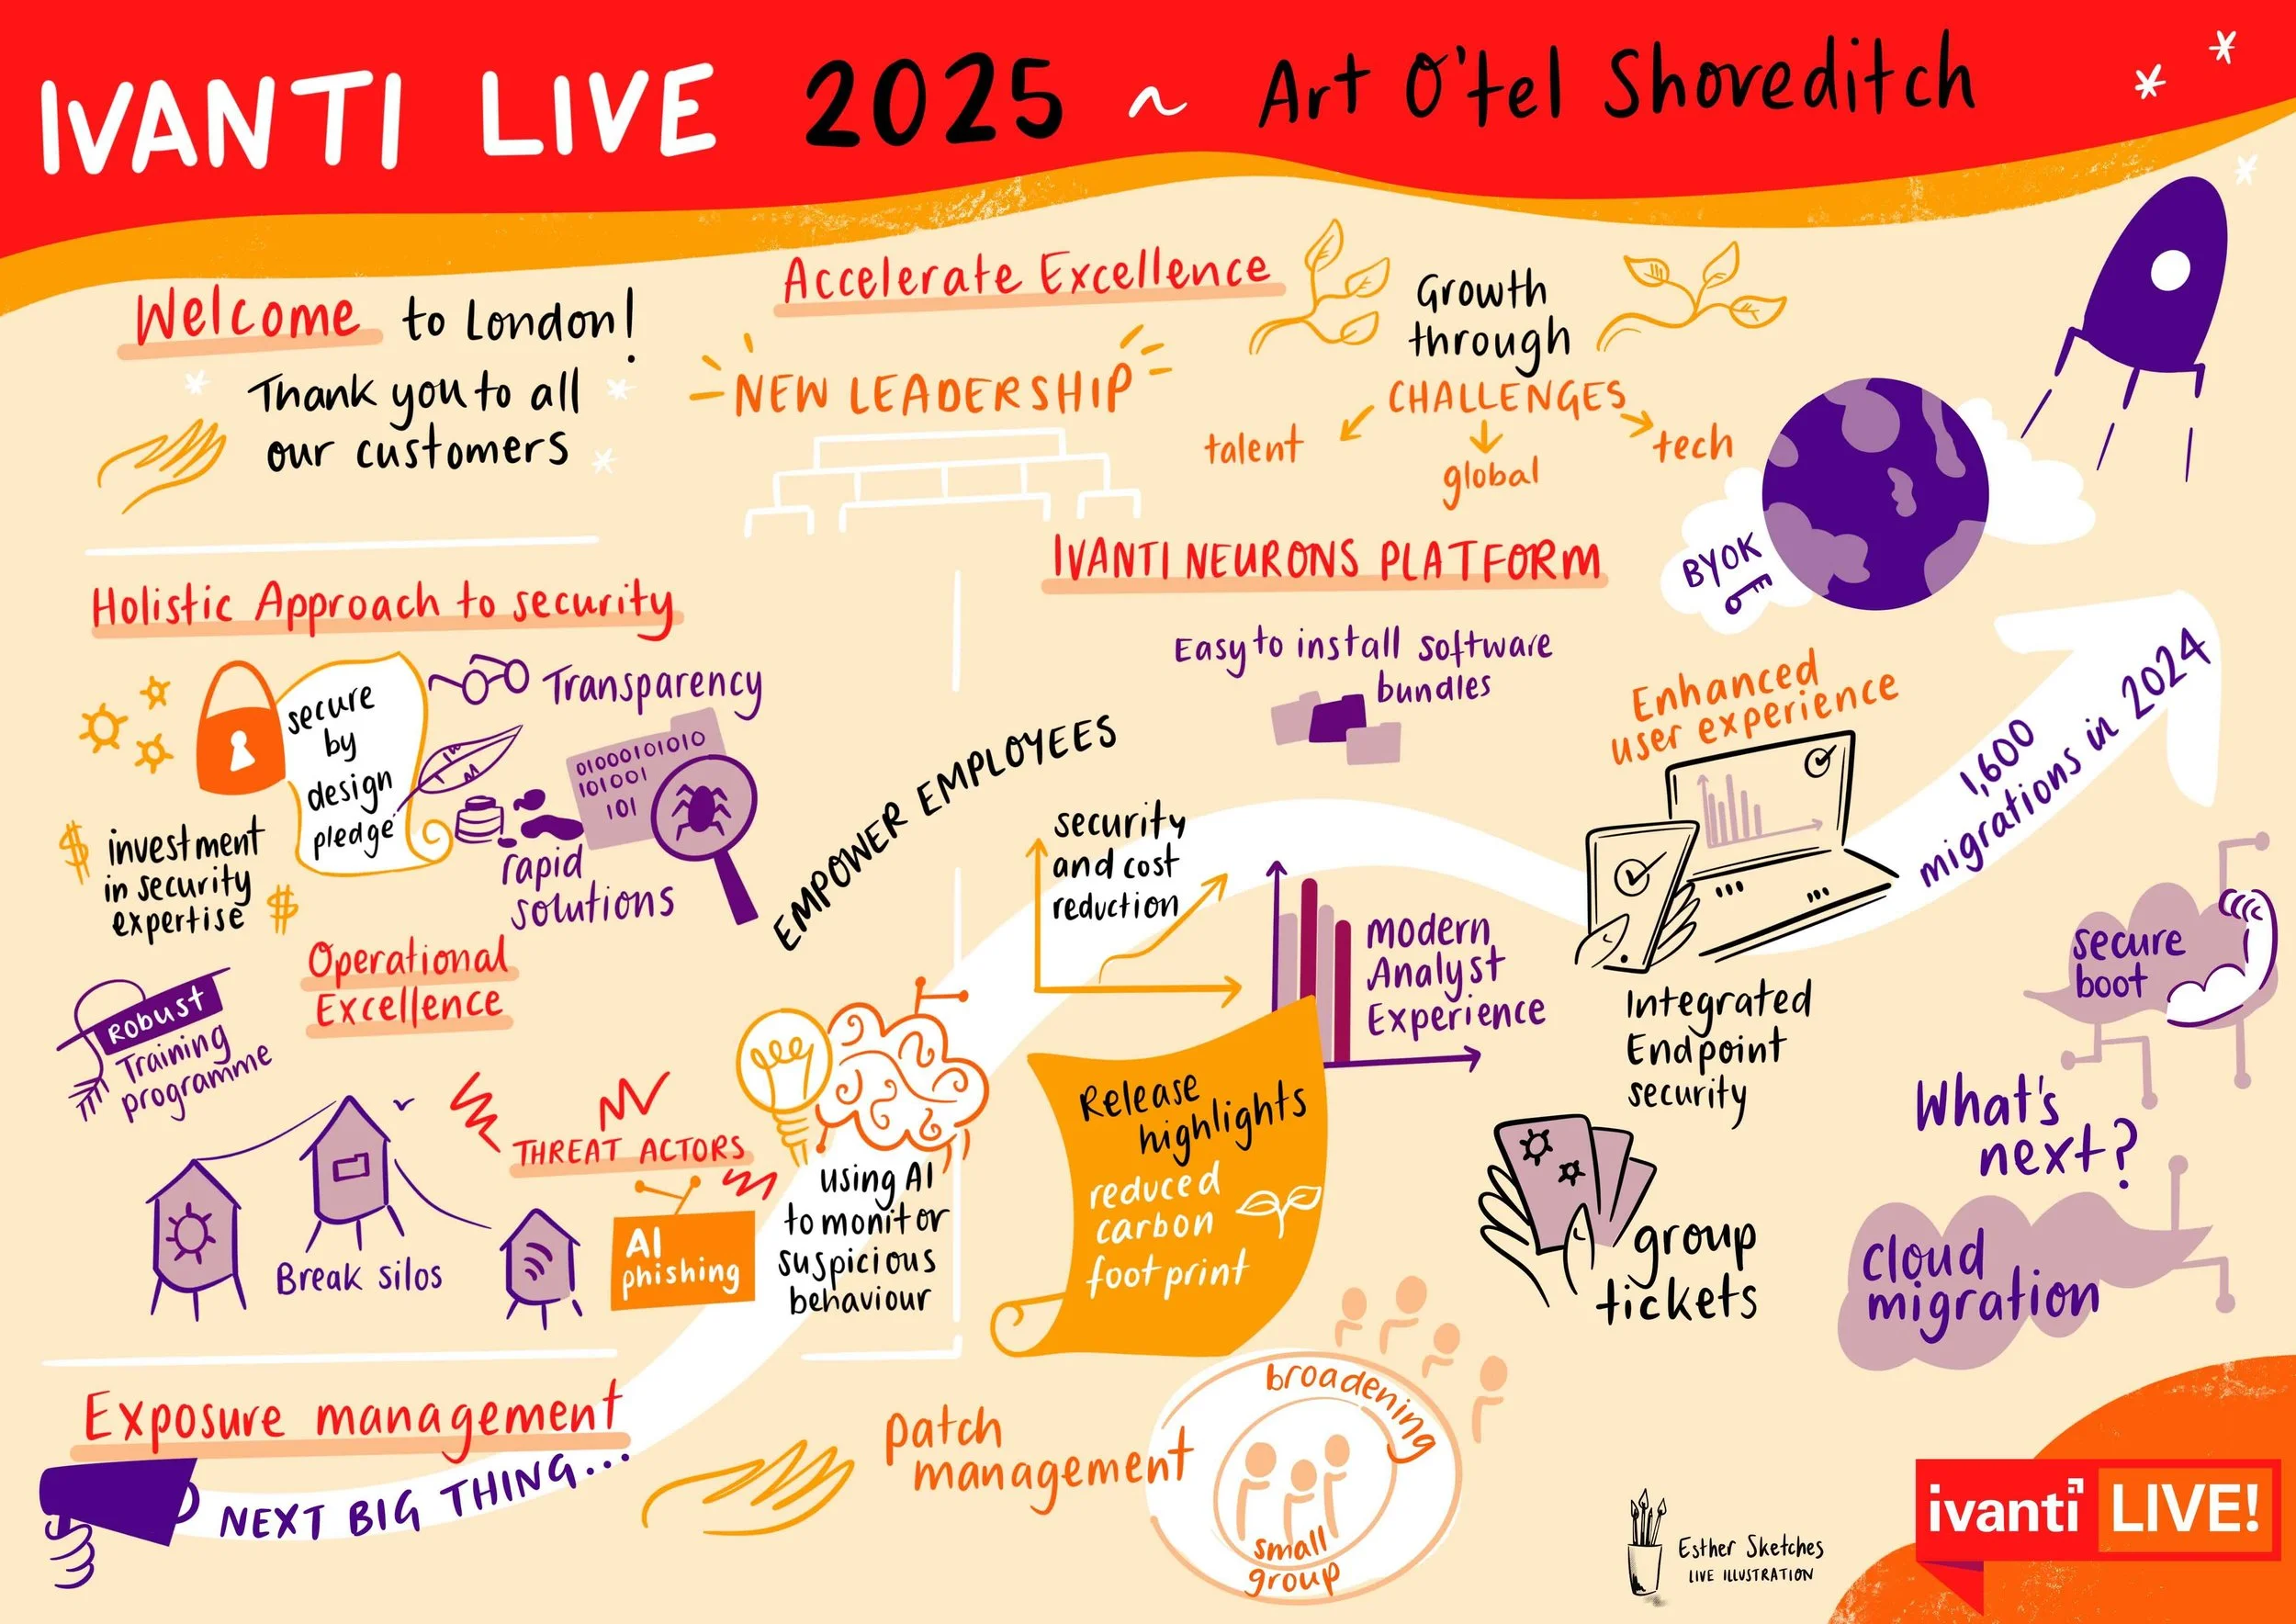 IVANTI LIVE 2025 ~ Art O'tel Shoreditch
Welcome to London!
Thank you to all
our customers
Accelerate Excellence
NEW LEADERSHIP
Growth
through
CHALLENGES
talent
global
tech
Holistic Approach to security
secure
by
design
pledge
Transparency
01000101010
101001
101
rapid
solutions
investment
in security
expertise
$
$
Operational
Excellence
Robust
Training
programme
Break silos
THREAT ACTORS
AI
phishing
EMPOWER EMPLOYEES
using AI
to monitor
suspicious
behaviour
IVANTI NEURONS PLATFORM
BYOK
Easy to install software
bundles
security
and cost
reduction
Modern
Analyst
Experience
Enhanced
user experience
1,600
migrations in 2024
Integrated
Endpoint
security
Release
highlights
reduced
carbon
foot print
group
tickets
secure
boot
What's
next?
cloud
migration
Exposure management
NEXT BIG THING...
patch
management
broadening
small
group
Esther Sketches
LIVE ILLUSTRATION
ivanti LIVE!